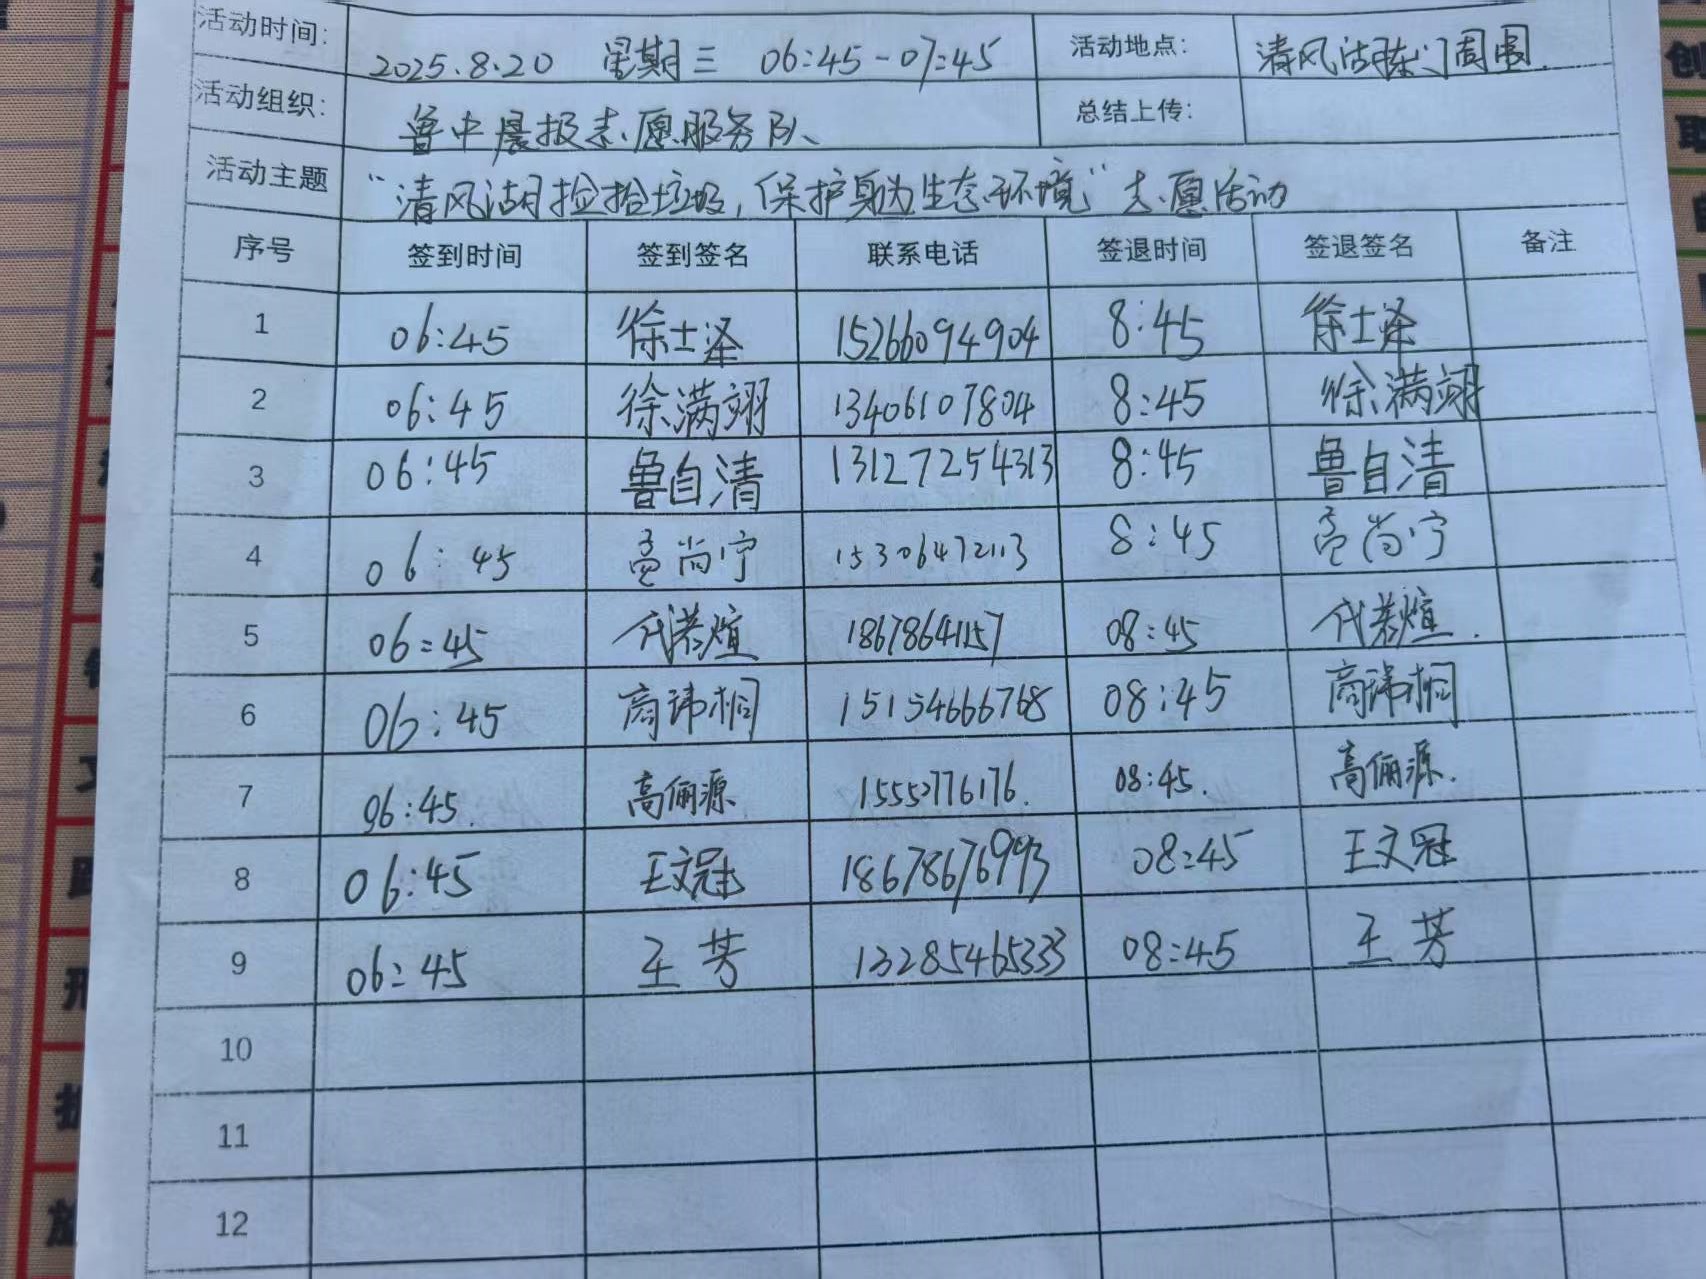 活动时间: 2025.8.20 星期三 06:45-07:45 活动地点: 清风湖 门周围
活动组织: 鲁中晨报志愿服务队 总结上传:
活动主题 “清风湖捡拾垃圾,保护身边生态环境”志愿活动
序号 签到时间 签到签名 联系电话 签退时间 签退签名 备注
1 06:45 徐士泽 15266094904 8:45 徐士泽
2 06:45 徐满翊 13406107804 8:45 徐满翊
3 06:45 鲁自清 13127254313 8:45 鲁自清
4 06:45 尚宁 15306472113 8:45 尚宁
5 06:45 代若煊 18678641157 08:45 代若煊.
6 06:45 商玮桐 15154666768 08:45 商玮桐
7 06:45. 高俪源 08:45. 高俪源.
8 06:45 王文冠 18678676993 08:45 王文冠
9 06:45 王芳 13285465333 08:45 王芳
10
11
12